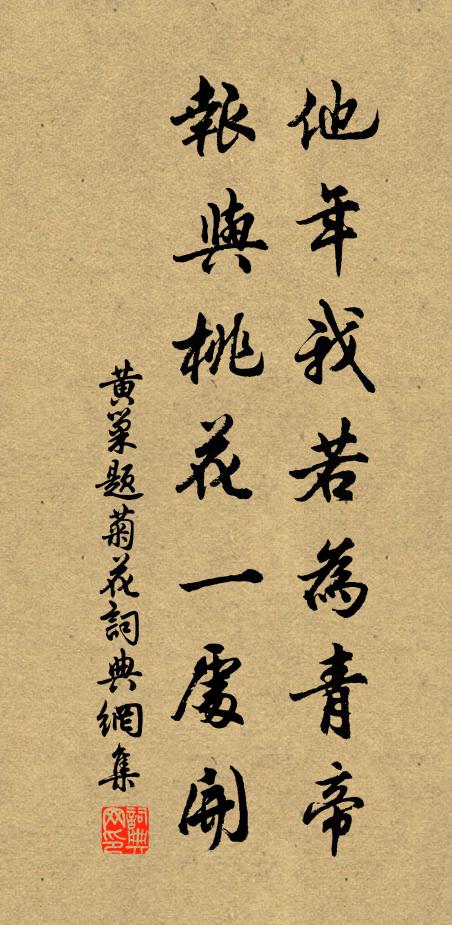 他年我若為青帝
報與桃花一處開
黃巢題菊花詞典網集
詞典网印